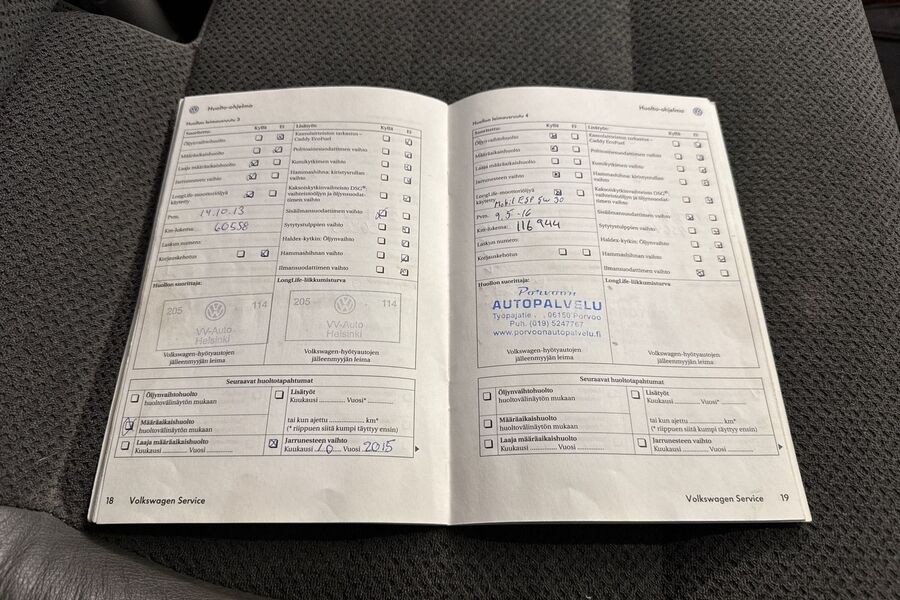 Huolto-ohjelma
Huollon leimausruutu 3
Suoritettu: Kyllä Ei Lisätyöt: Kyllä Ei
Öljynvaihtohuolto
Kaasulaitteiston tarkastus – Caddy EcoFuel
Määräaikaishuolto
Polttoainesuodattimen vaihto
Laaja määräaikaishuolto
Kumikytkimen vaihto
Jarrunesteen vaihto
Hammashihna: kiristysrullan vaihto
LongLife-moottoriöljyä käytetty
Kaksoiskytkinvaihteisto DSG®: vaihteistoöljyn ja öljynsuodattimen vaihto
Pvm. 14.10.13
Sisäilmansuodattimen vaihto
Km-lukema: 60558
Sytytystulppien vaihto
Laskun numero:
Haldex-kytkin: Öljynvaihto
Korjauskehotus
Hammashihnan vaihto
Ilmansuodattimen vaihto
Huollon suorittaja:
LongLife-liikkumisturva
205 114
VV-Auto
Helsinki
205 114
VV-Auto
Helsinki
Volkswagen-hyötyautojen
jälleenmyyjän leima
Volkswagen-hyötyautojen
jälleenmyyjän leima
Seuraavat huoltotapahtumat
Öljynvaihtohuolto
huoltovälinäytön mukaan
Lisätyöt
Kuukausi ............ Vuosi* ............
Määräaikaishuolto
huoltovälinäytön mukaan
tai kun ajettu ............ km*
(* riippuen siitä kumpi täyttyy ensin)
Laaja määräaikaishuolto
Kuukausi ............ Vuosi ............
Jarrunesteen vaihto
Kuukausi 10 Vuosi 2015
18 Volkswagen Service
Huolto-ohjelma
Huollon leimausruutu 4
Suoritettu: Kyllä Ei Lisätyöt: Kyllä Ei
Öljynvaihtohuolto
Kaasulaitteiston tarkastus – Caddy EcoFuel
Määräaikaishuolto
Polttoainesuodattimen vaihto
Laaja määräaikaishuolto
Kumikytkimen vaihto
Jarrunesteen vaihto
Hammashihna: kiristysrullan vaihto
LongLife-moottoriöljyä käytetty Mobil ESP 5w30
Kaksoiskytkinvaihteisto DSG®: vaihteistoöljyn ja öljynsuodattimen vaihto
Pvm. 9.5-16
Sisäilmansuodattimen vaihto
Km-lukema: 116944
Sytytystulppien vaihto
Laskun numero:
Haldex-kytkin: Öljynvaihto
Korjauskehotus
Hammashihnan vaihto
Ilmansuodattimen vaihto
Huollon suorittaja:
LongLife-liikkumisturva
Porvoon
AUTOPALVELU
Työpajatie , 06150 Porvoo
Puh. (019) 5247767
www.porvoonautopalvelu.fi
Volkswagen-hyötyautojen
jälleenmyyjän leima
Volkswagen-hyötyautojen
jälleenmyyjän leima
Seuraavat huoltotapahtumat
Öljynvaihtohuolto
huoltovälinäytön mukaan
Lisätyöt
Kuukausi ............ Vuosi* ............
Määräaikaishuolto
huoltovälinäytön mukaan
tai kun ajettu ............ km*
(* riippuen siitä kumpi täyttyy ensin)
Laaja määräaikaishuolto
Kuukausi ............ Vuosi ............
Jarrunesteen vaihto
Kuukausi ............ Vuosi ............
Volkswagen Service 19